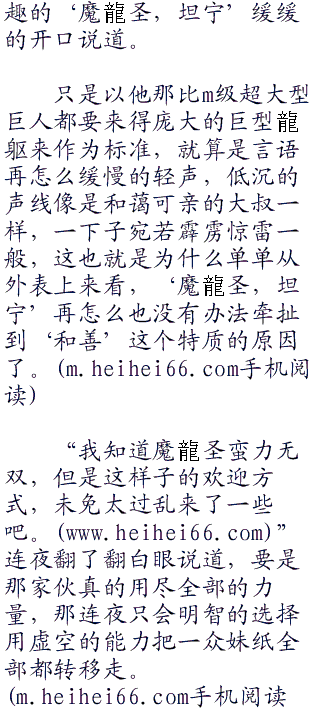 趣的‘魔龍圣，坦宁’缓缓
的开口说道。
只是以他那比m级超大型
巨人都要来得庞大的巨型龍
躯来作为标准，就算是言语
再怎么缓慢的轻声，低沉的
声线像是和蔼可亲的大叔一
样，一下子宛若霹雳惊雷一
般，这也就是为什么单单从
外表上来看，‘魔龍圣，坦
宁’再怎么也没有办法牵扯
到‘和善’这个特质的原因
了。(m.heihei66.com手机阅
读)
“我知道魔龍圣蛮力无
双，但是这样子的欢迎方
式，未免太过乱来了一些
吧。(www.heihei66.com)”
连夜翻了翻白眼说道，要是
那家伙真的用尽全部的力
量，那连夜只会明智的选择
用虚空的能力把一众妹纸全
部都转移走。
(m.heihei66.com手机阅读